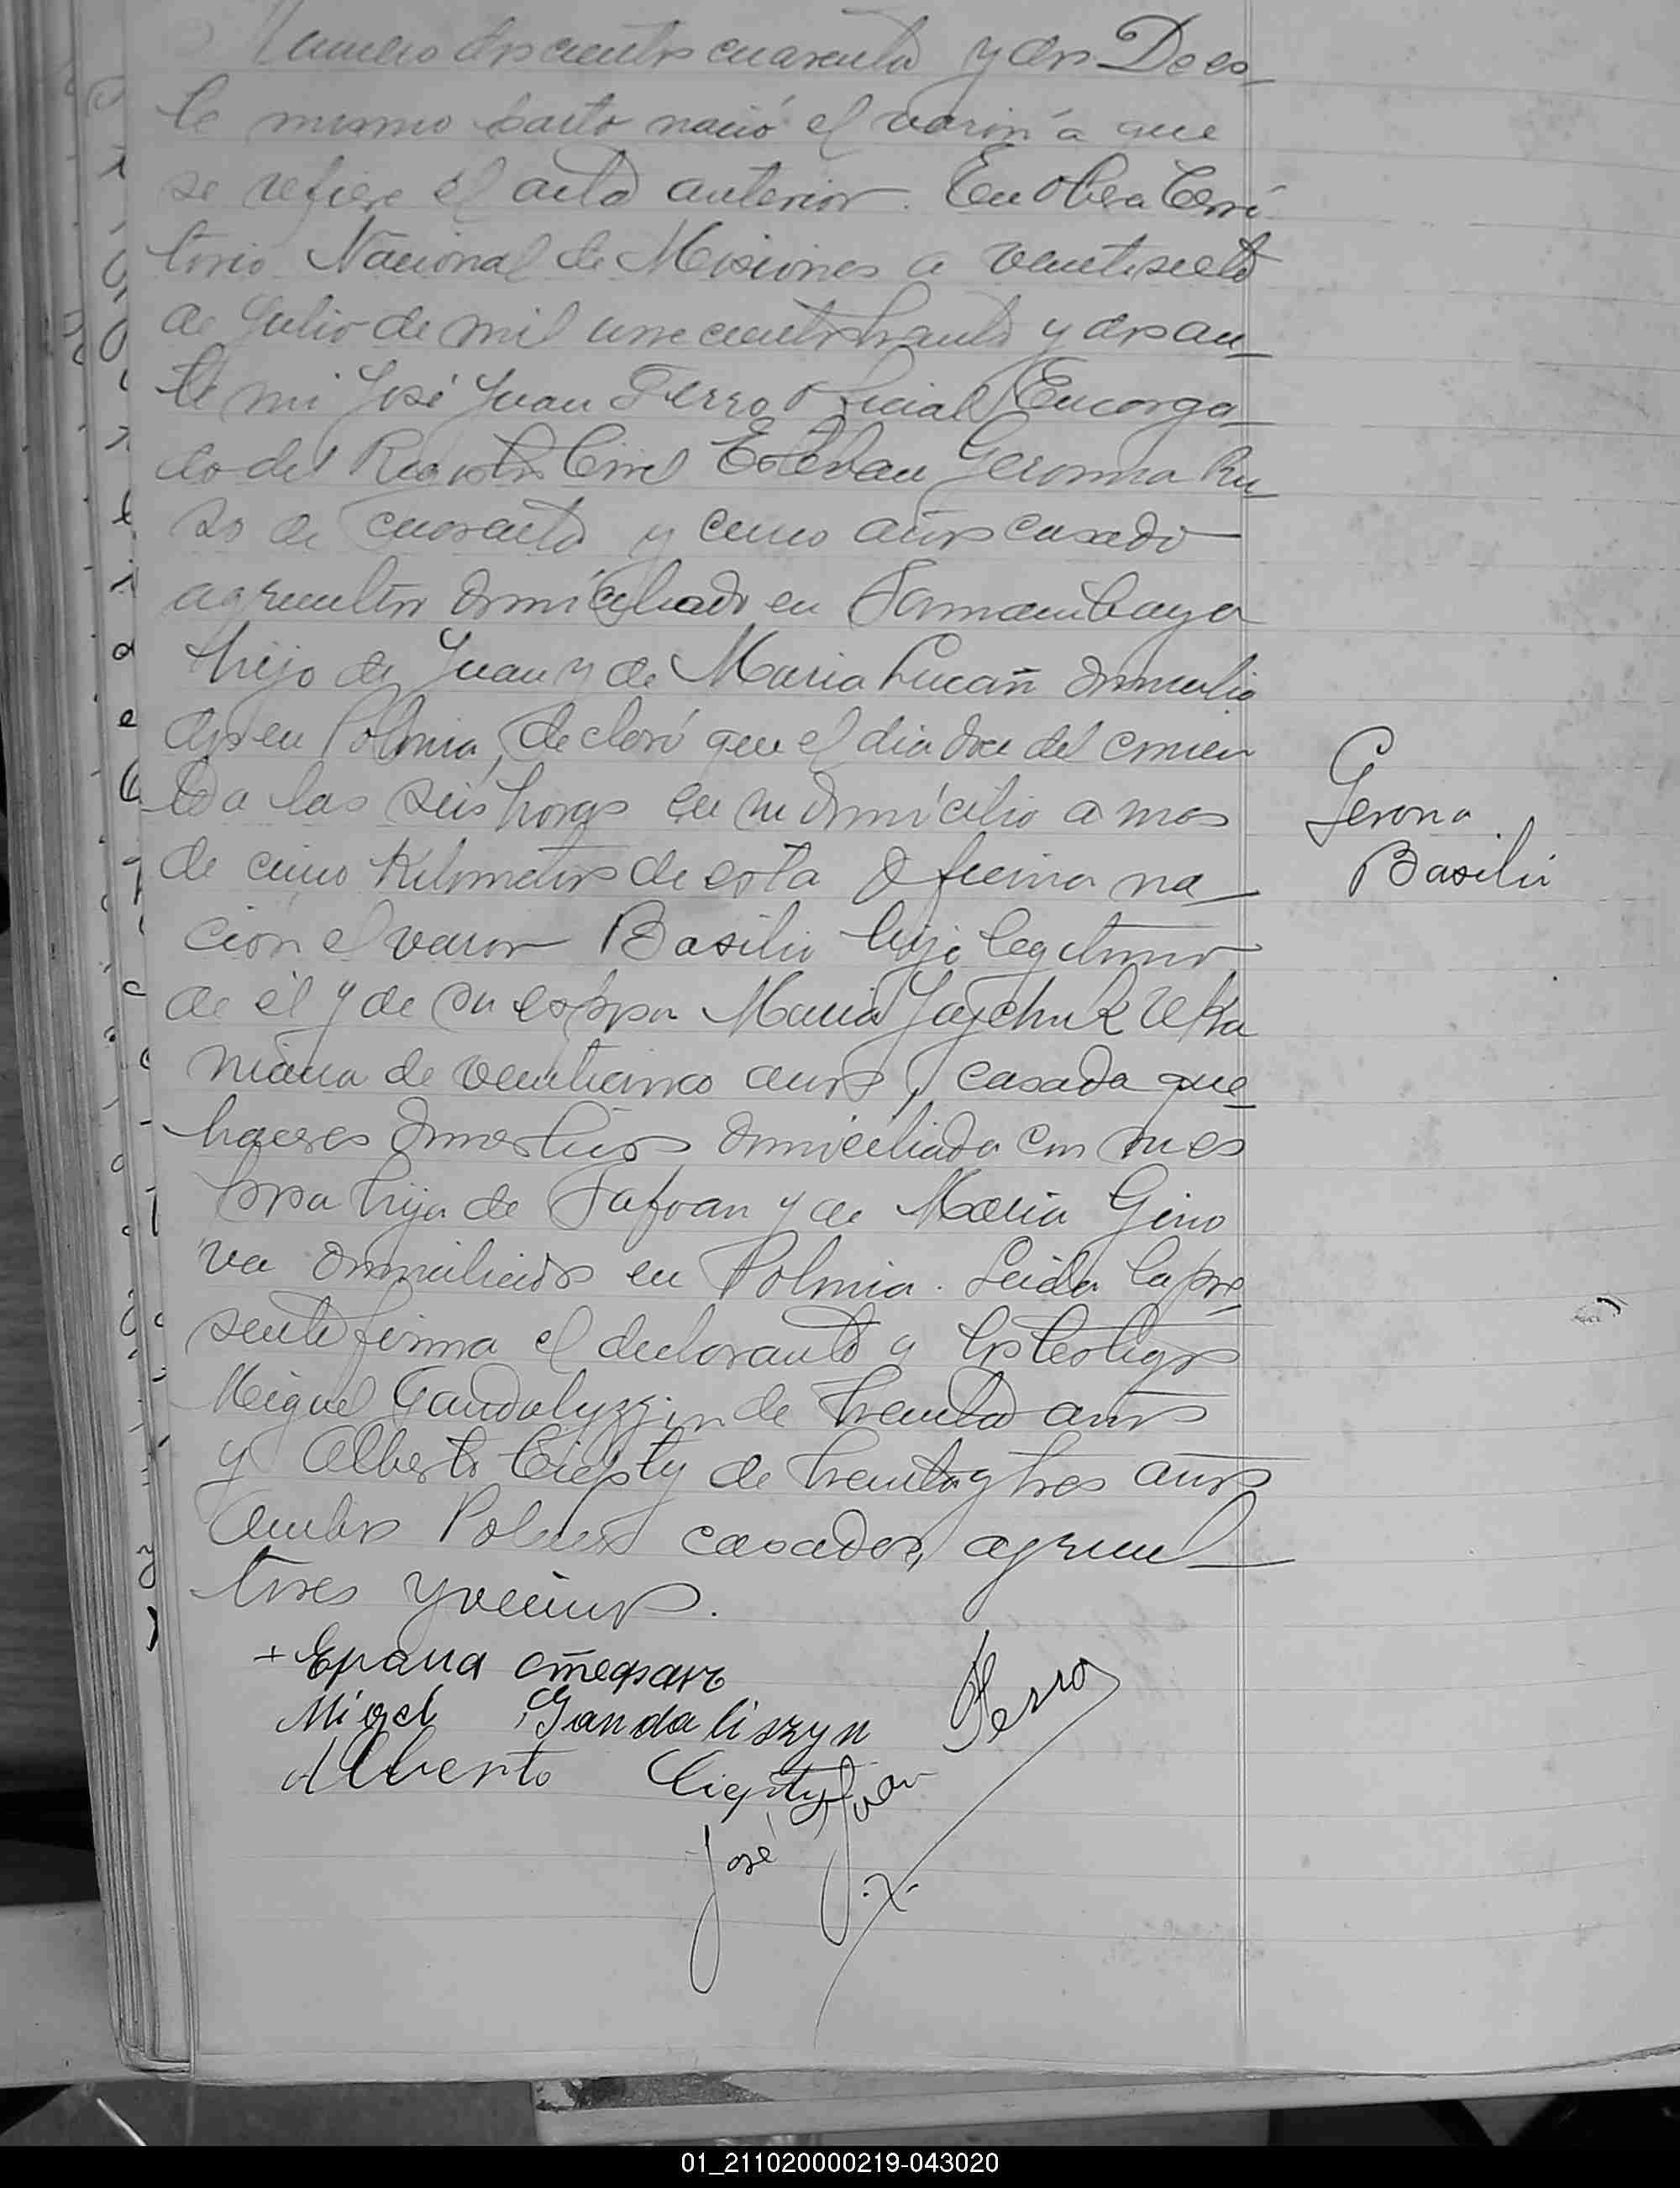 Numero doscientos cuarenta y dos De es-
te mismo parto nació el varón a que
se refiere el acta anterior. En Obera Terri
torio Nacional de Misiones a veintisiete
de Julio de mil novecientos treinta y dos an-
te mi José Juan Ferro Oficial Encarga-
do del Registro Civil Esteban Gerona Ru-
so de cuarenta y cinco años casado
agricultor domiciliado en Samambaya
hijo de Juan y de Maria Lucañ domicilia
dos en Polonia, declaró que el dia doce del corrien
te a las seis horas en su domicilio a mas
de cinco Kilometros de esta Oficina na-
ció el varon Basilio hijo legitimo
de él y de su esposa Maria Jajchuk Ukra
niana de veinticinco años, casada que-
haceres domesticos domiciliada con su es
posa hija de Safoan y de Maria Gino
va domiciliados en Polonia. Leida la pre-
sente firma el declarante y los testigos
Miguel Gandalyzzin de treinta años
y Alberto Ciepty de treinta y tres años
ambos Polacos casados, agricul-
tores y vecinos.
+ Ерапа
Migel Gandaliszyn
Alberto Ciepty
José Juan Ferro
Gerona
Basilio
01_211020000219-043020